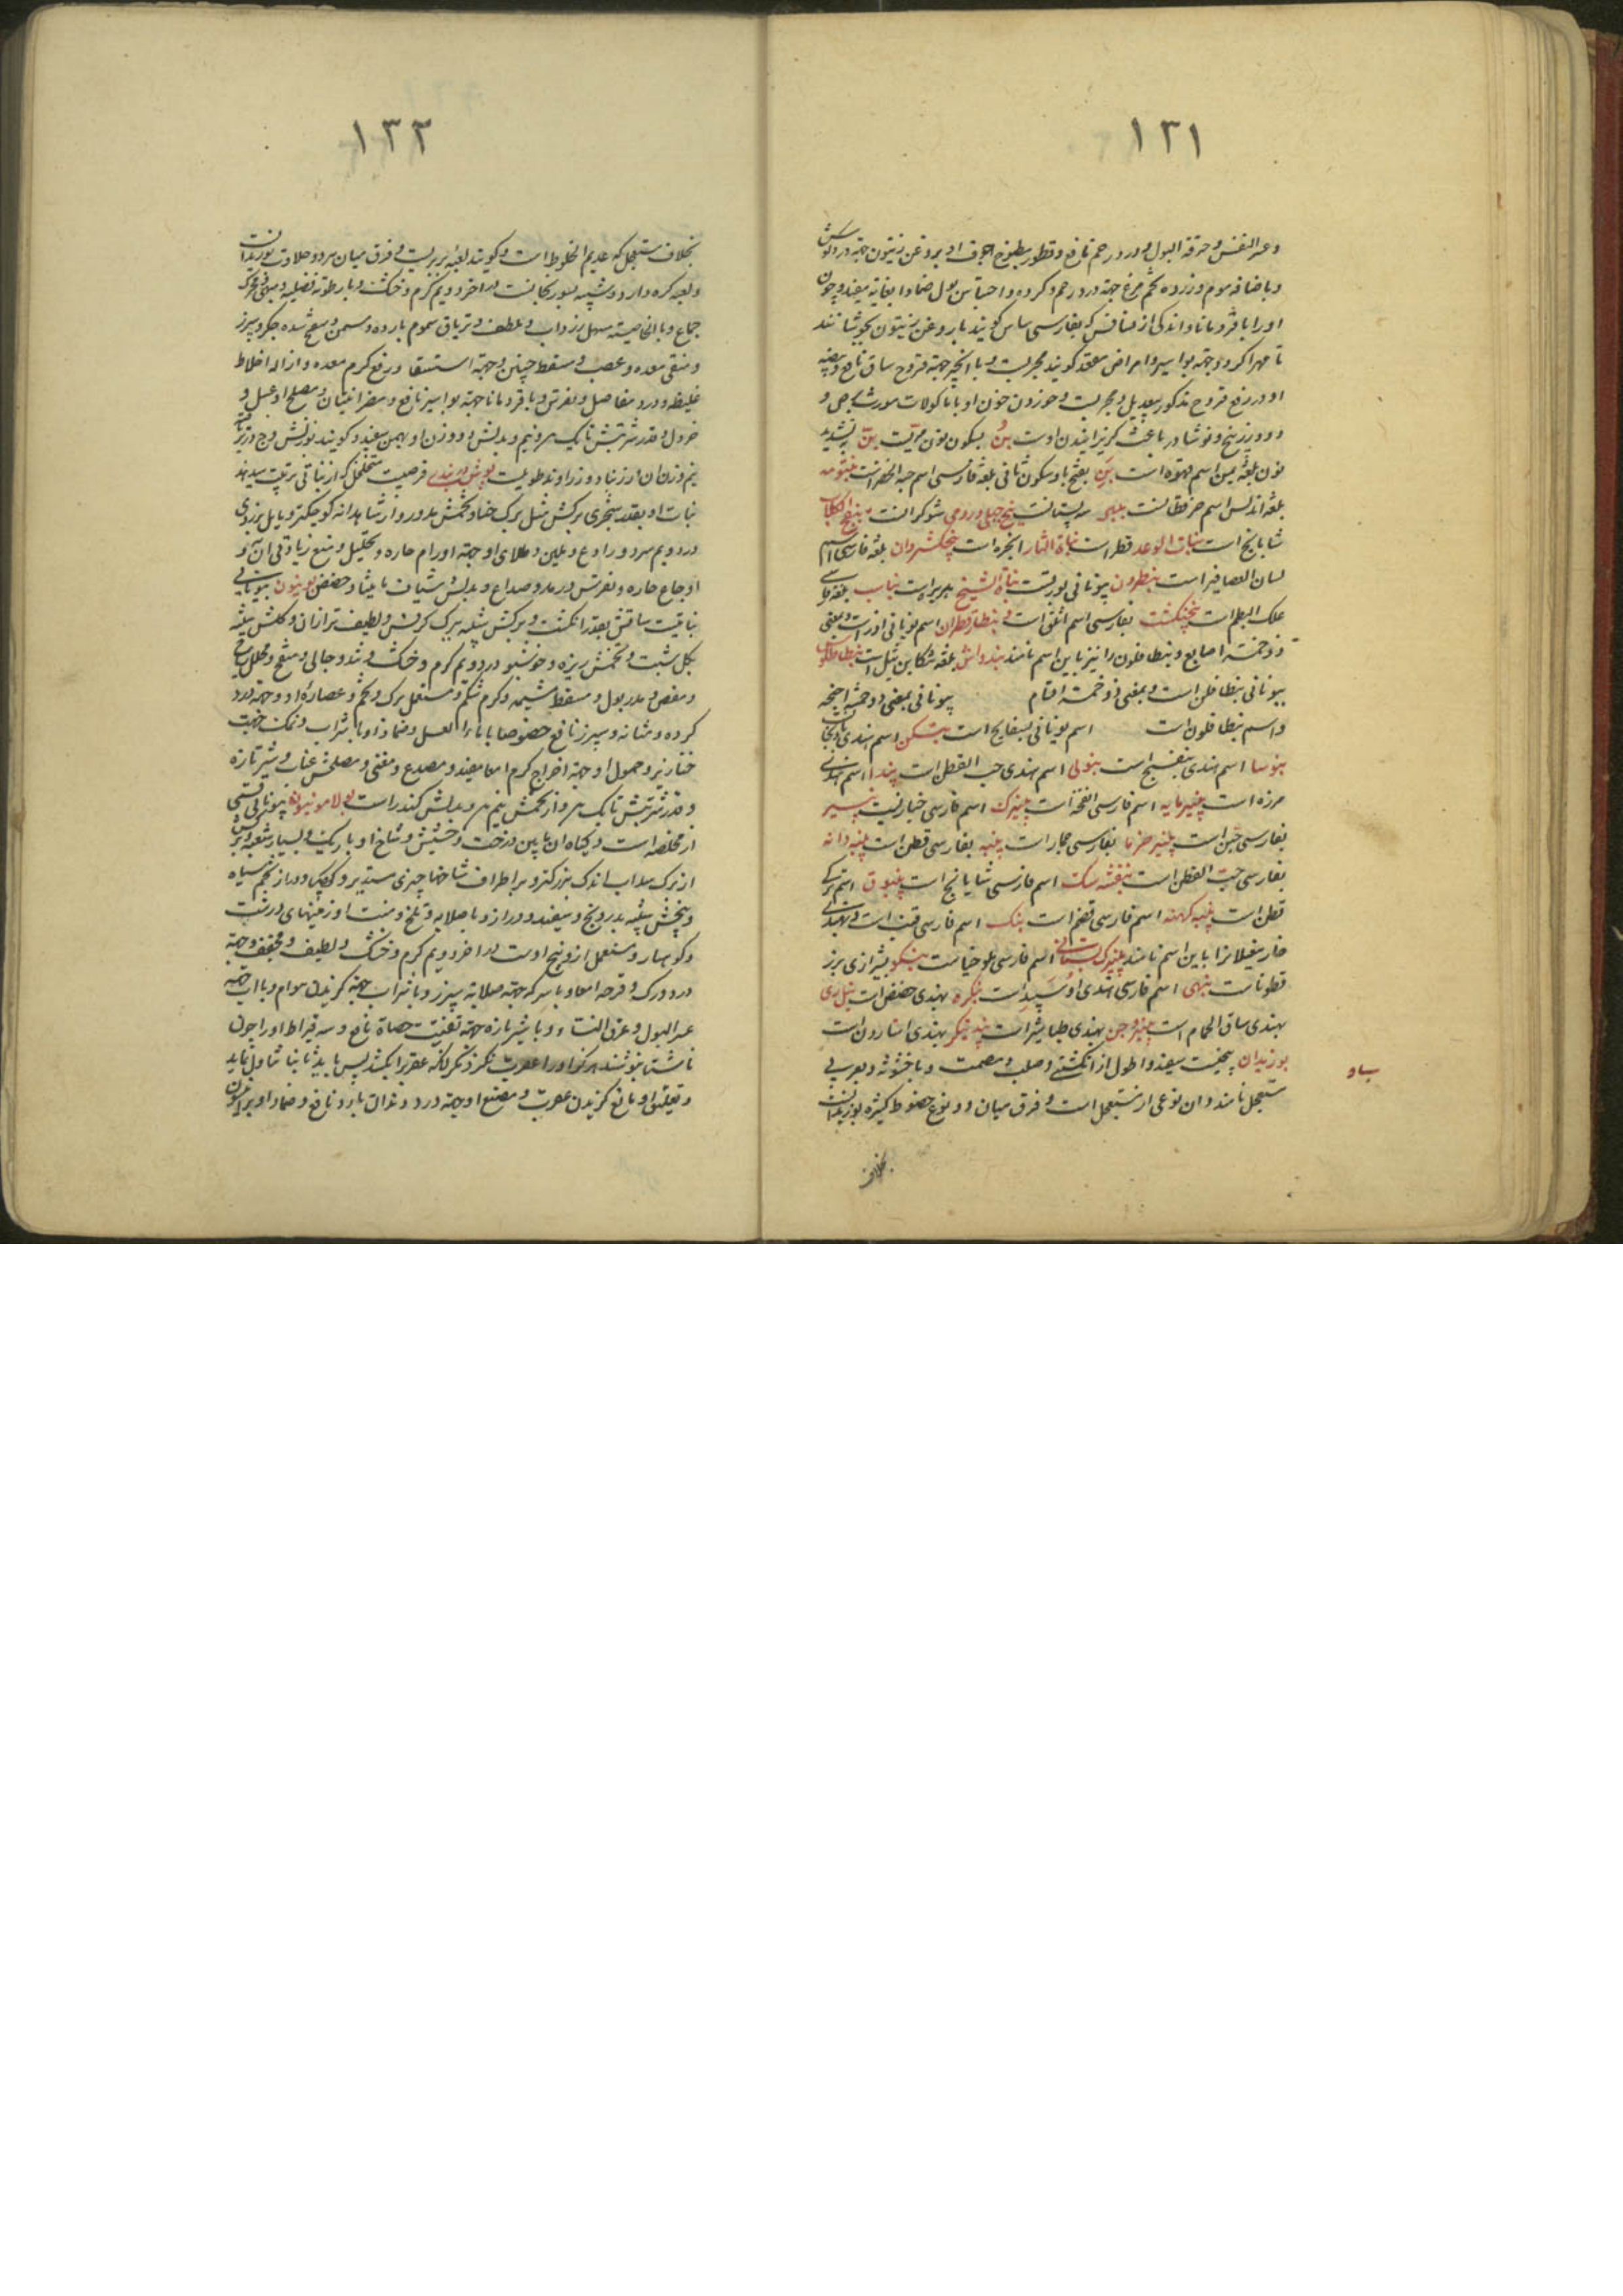 ١٣١
وعسر النفس وحرقة البول ودرد رحم نافع وقطور مطبوخ اجواف او بروغن زیتون جهة درد کوش
وباضافه موم وزرده تخم مرغ جهة درد رحم وکرده واحتباس بول ضمادا بغایة مفید وچون
اورا با قردمانا واندکی از فسافس که بفارسی ساس کویند با روغن زیتون بجوشانند
تا مهرا کردد جهة بواسیر وامراض مقعد کویند مجربست وبا انجیر جهة قروح ساق نافع وبیضه
او در رفع قروح مذکور بیعدیل ومجربست وخوردن خون او با ماکولات مورث برص و
دود زرنیخ ونوشادر باعث کریزانیدن اوست بن بسکون نون مریست بن بتشدید
نون بلغة یمن اسم قهوه است بن بفتح با وسکون ثانی بلغة فارسی اسم حبة الخضراست بنتومه
بلغة اندلس اسم است سه پستانست بنج جبلی ورومی شوکرانست بنفج الکلاب
شابابج است بنات الرعد فطر است نباة النار انجره است بنجکشروان بلغة فارسی اسم
لسان العصافیر است بنطرون بیونانی بورقست نباة الشیخ است بناب بلغة فارسی
علک البطم است بنجنکشت بفارسی اسم اثلق است و بنطارقطران اسم یونانی اوست وبمعنی
ذوخمسة اصابع وبنطافلون را نیز باین اسم نامند بندواش بلغة تنکابن ثیل است بنطافلون
بیونانی بنطافلن است وبمعنی ذوخمسة اقسام بیونانی بمعنی ذوخمسة اجنحه
واسم بنطافلون است اسم یونانی بسفایج است بنتکن اسم هندی بادنجان
بنوسا اسم هندی بنفسج است بنولی اسم هندی حب القطن است پندا اسم هندی
مرزه است پنیرمایه اسم فارسی انفحه است پنیرک اسم فارسی خبازیست پنیر
بفارسی جبن است پنیر خرما بفارسی جمار است پنبه بفارسی قطن است پنبه دانه
بفارسی حب القطن است بنفشه سک اسم فارسی شابابج است پنبوق اسم ترکی
قطن است پنبه کهنه اسم فارسی قضم است بنک اسم فارسی قنب است وبهندی
خار مغیلانرا باین اسم نامند پنیرک بستانی اسم فارسی ملوخیاست بنکو بشیرازی بزر
قطوناست بنهی اسم فارسی است بنکره بهندی حضض است
بهندی ساق الحمام است بنزوجن بهندی طباشیر است بهندی اسارون است
بوزیدان بیخیست سفید واطول از انکشتی وصلب ومصمت وبا خشونة وبعربی
مستعجل نامند وان نوعی از مستعجل است وفرق میان دو نوع خضوط کثیره بوزیدانست
بخلاف
١٣٢
بخلاف مستعجل که عدیم الخطوط است وکویند لعبة بربریست وفرق میان هردو حلاوت بوزیدانست
ولعبه کره دارد وشبیه بسورنجانست در اخر دویم کرم وخشک وبا رطوبة فضلیه ومبهی ومحرک
جماع وبالخاصیه مسهل زرداب وملطف وتریاق سموم بارده ومسمن ومفتح سده جکر وسپرز
ومنقی معده وعصب ومسقط جنین وجهة استسقا ورفع کرم معده وازاله اخلاط
غلیظه ودرد مفاصل ونقرس وبا قردمانا جهة بواسیر نافع ومضر انثیان ومصلح او عسل و
خردل وقدر شربتش تا یک درم ونیم وبدلش دو وزن او بهمن سفید وکویند بوزنش
نیم وزن ان زرنباد وزراوند طویلست بوش دربندی قرصیست متخلخل که از نباتی ترتیب میدهند
نبات او بقدر شجری برکش مثل برک حنا وتخمش مدور واز شاهدانه کوچکتر ومایل بزردی
در دویم سرد ورادع وملین وطلای او جهة اورام حاره وتحلیل ومنع زیادتی ان و
اوجاع حاره ونقرس ورمد وصداع وبدلش شیاف مامیثا وحضض بونیون بیونانی
نباتیست ساقش بقدر انکشت وبرکش شبیه ببرک کرفس ولطیف تر از ان وکلش شبیه
بکل شبت وتخمش ریزه وخوشبو در دویم کرم وخشک وتند وجالی ومفتح ومحلل ریاح
ومغص ومدر بول ومسقط مشیمه وکرم شکم ومستعمل برک وتخم وعصارهٔ او وجهة درد
کرده ومثانه وسپرز نافع خصوصا با ماء العسل وضماد او با شراب ونمک جهت
خنازیر وحمول او جهة اخراج کرم امعا مفید ومصدع ومغثی ومصلحش عناب وشیر تازه
وقدر شربتش تا یک درم واز تخمش نیم درم وبدلش کندر است بولامونیون بیونانی قسمی
از مخلصه است وکیاه ان مابین درخت وحشیش وشاخ او باریک وبسیار شعبه وبرکش
از برک سداب اندک بزرکتر وبر اطراف شاخها چیزی مستدیر وکوچک ودراز تخم سیاه
وبیخش شبیه بدرونج وسفید ودراز وبا صلابه وتلخ ومنبت او زمینهای درشت
وکوهسار ومستعمل از او بیخ اوست در اخر دویم کرم وخشک ولطیف ومجفف وجهة
درد ورک وقرحه امعا وبا سرکه جهة صلابة سپرز وبا شراب جهة کزیدن هوام وبا اب جهة
عسر البول وعرق النسا وبا شیر تازه جهة تفتیت حصاة نافع وسه قیراط او را چون
ناشتا بنوشند هرکز او را عقرب نکزد مکر انکه عقربرا بکشد پس باید ثانیا تناول نماید
وتعلیق او مانع کزیدن عقرب ومضغ او جهة درد دندان بارد نافع وضماد او برای
بیاو